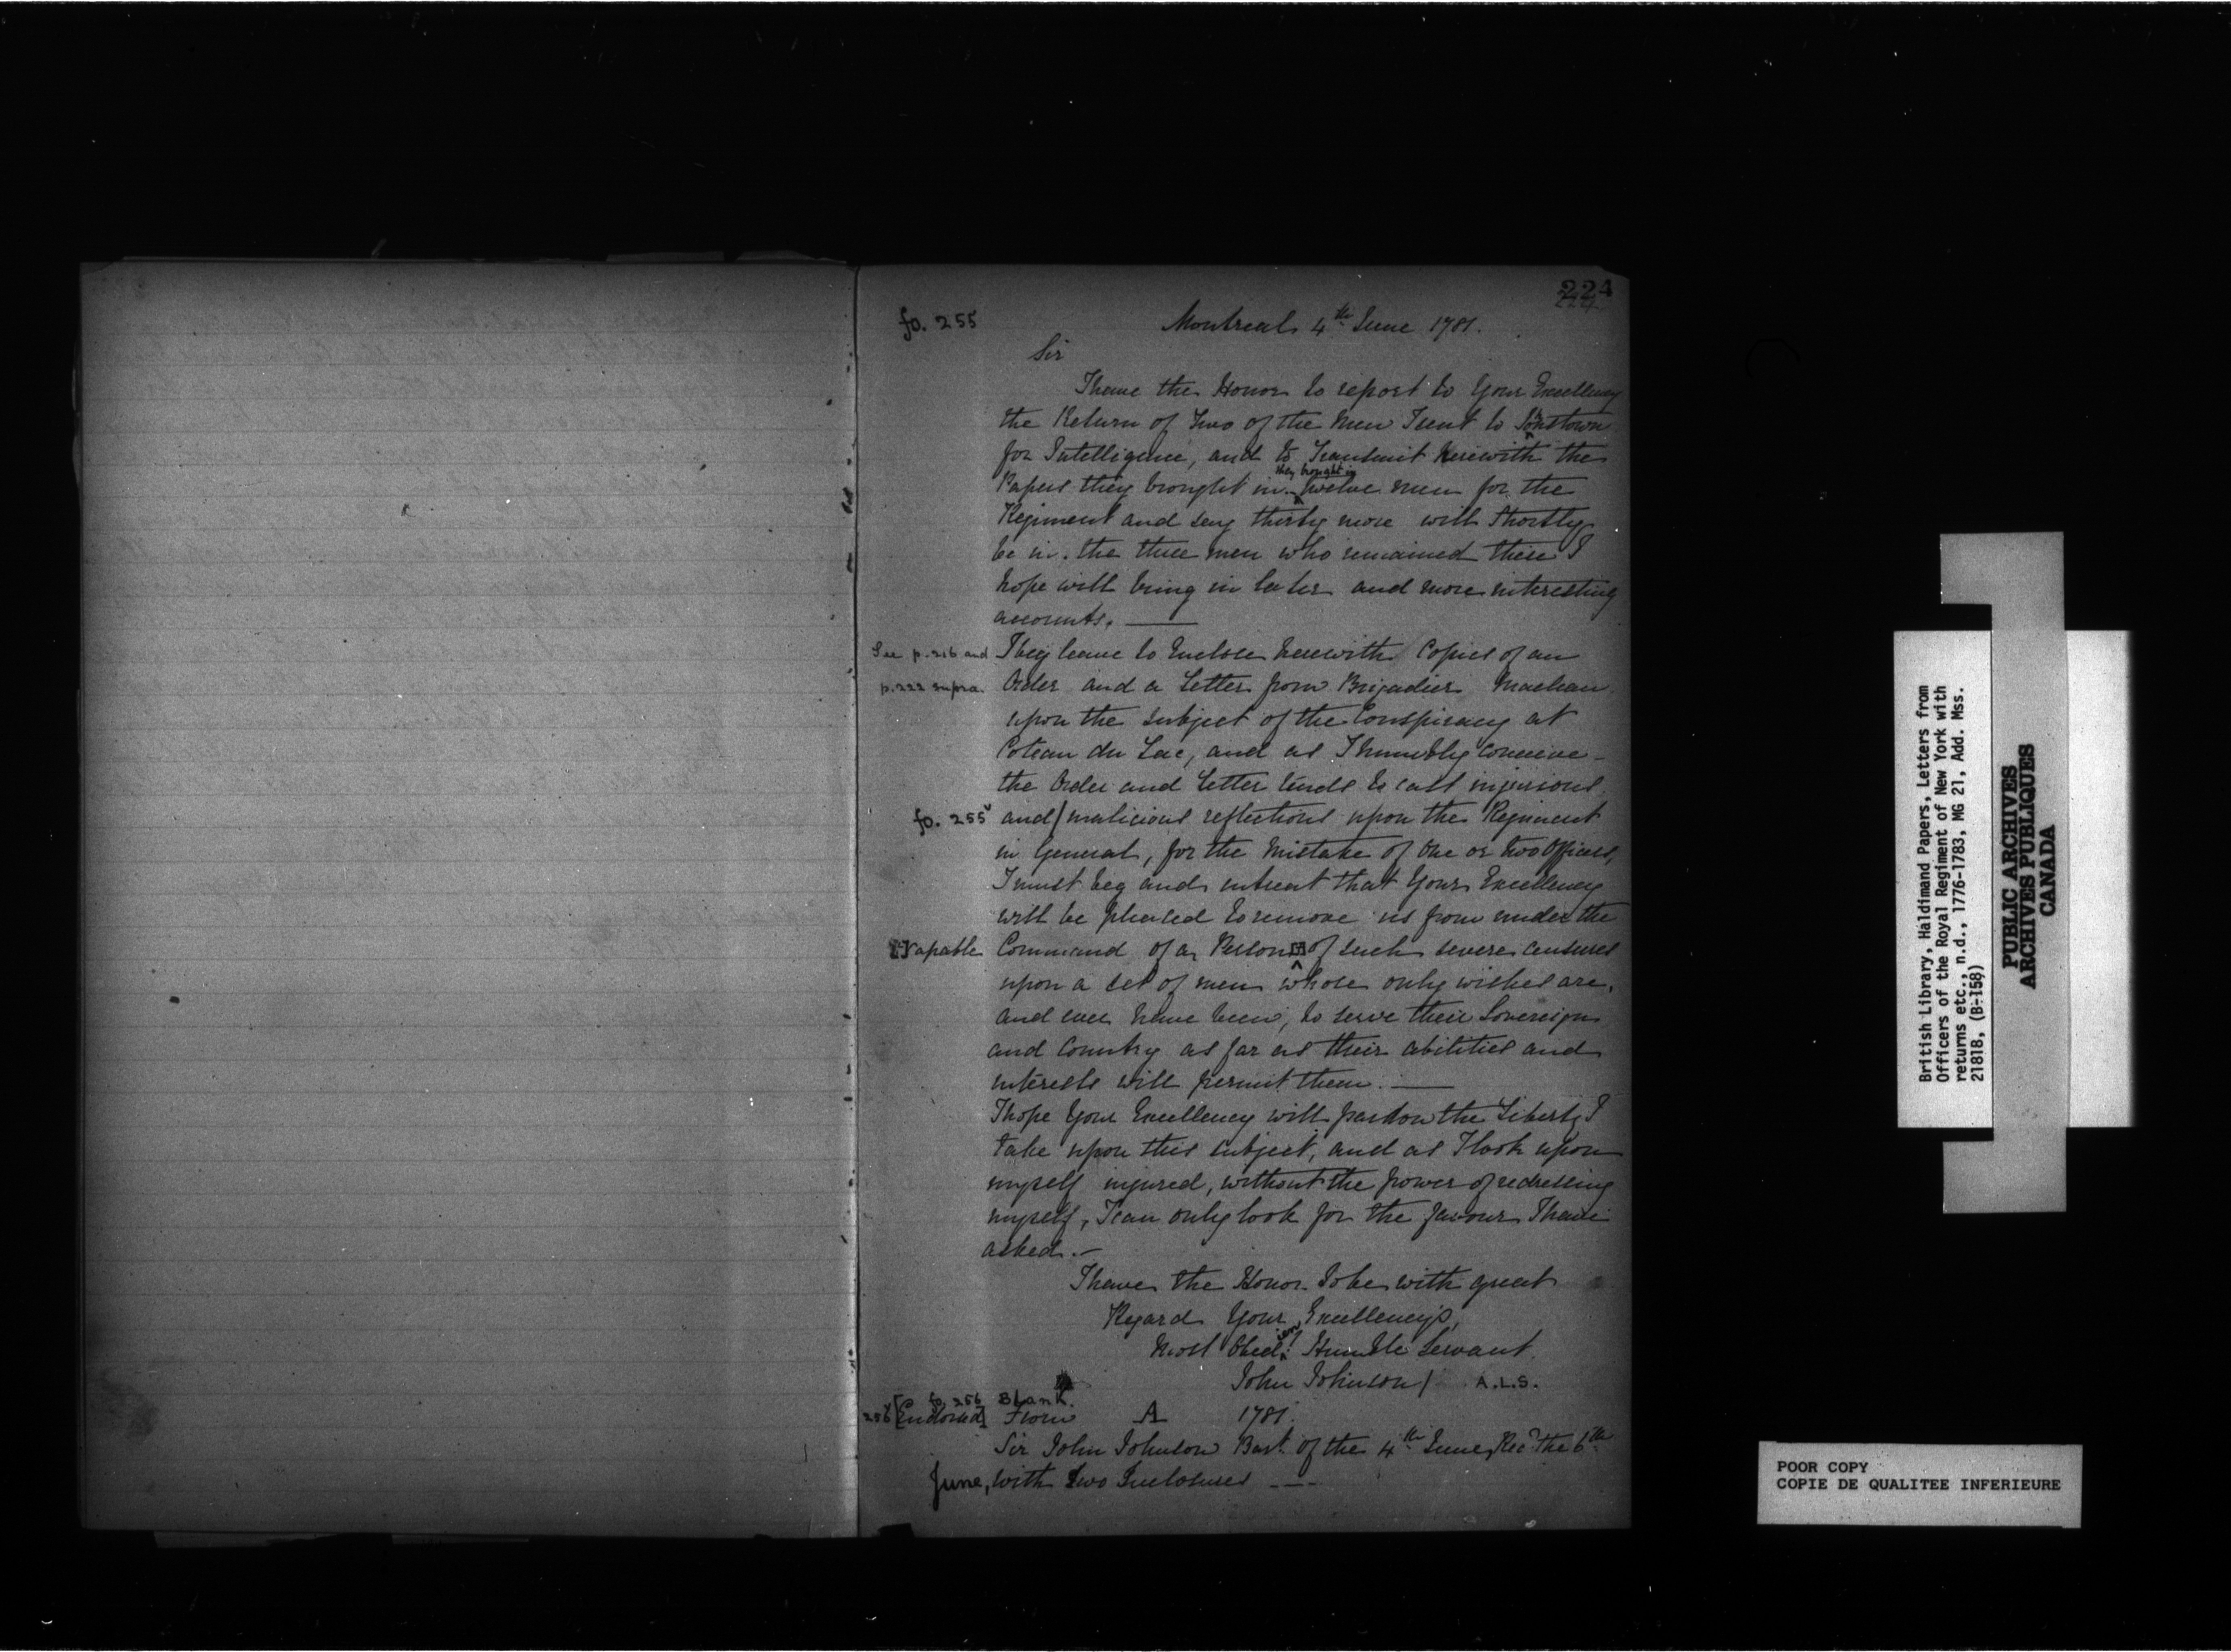 224
224.
fo. 255
Montreal 4th June 1781.
Sir
I have the Honor to report to Your Excellency
the Return of Two of the Men I sent to Jonstown
for Intelligence, and to Transmit Herewith the
they brought in
Papers they brought in. twelve men for the
Regiment and say thirty more will Shortly
be in. the three men who remained there I
hope will bring in later and more interesting
accounts. ——
See p. 216 and p. 222 supra.
I beg leave to Enclose herewith Copies of an
Order and a Letter from Brigadier Maclean
upon the subject of the Conspiracy at
Coteau du Lac, and as I humbly conceive -
the Order and Letter tends to cast injurious
fo. 255v and / malicious reflections upon the Regiment
in General, for the Mistake of One or two Officers,
I must beg and intreat that Your Excellency
will be pleased to remove us from under the
capable
Command of a Person of such severe censures
upon a set of men whose only wishes are,
and ever have been, to serve their Sovereign
and Country as far as their abilities and
interests will permit them. ——
I hope Your Excellency will pardon the Liberty I
take upon this subject, and as I look upon
myself injured, without the power of redressing
myself, I can only look for the favour I have
asked. -
I have the Honor to be with great
Regard Your Excellency's,
Most Obedient Humble Servant
John Johnson / A.L.S.
fo. 256 Blank.
256v [Endorsed] From A 1781.
Sir John Johnson Bart. of the 4th June, Recd the 6th
June, with two Inclosures ----
British Library, Haldimand Papers, Letters from
Officers of the Royal Regiment of New York with
returns etc., n.d., 1776-1783, MG 21, Add. Mss.
21818, (B-158)
PUBLIC ARCHIVES
ARCHIVES PUBLIQUES
CANADA
POOR COPY
COPIE DE QUALITEE INFERIEURE